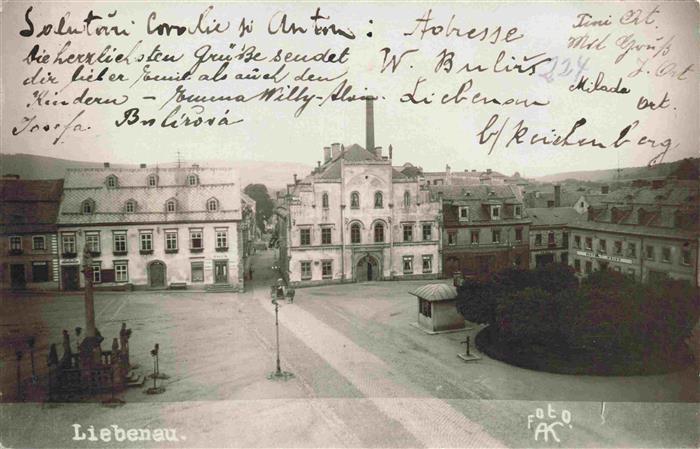 Salutări Coralie și Anton :
die herzlichsten Grüße sendet
dir lieber Emil als auch den
Kindern – Emma Willy – Alvin.
Josefa. Bulířová
Adresse
W. Bulirš
Liebenau
b/Reichenberg
224
Tini Ort.
Mit Gruß
J. Ort
Milada
Ort.
Liebenau.
Foto
AK